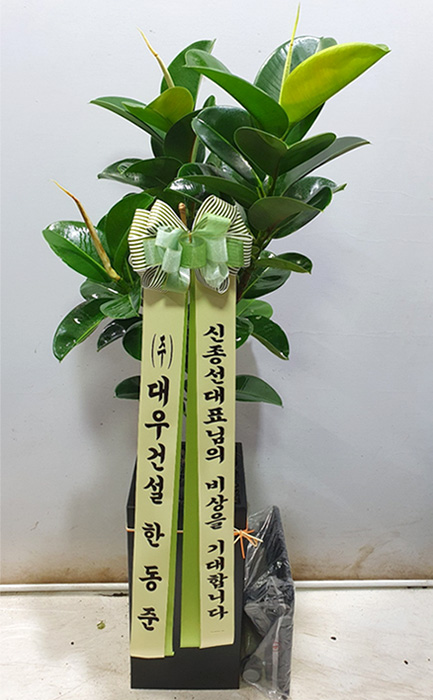 신종선대표님의 비상을 기대합니다
(주) 대우건설 한동준